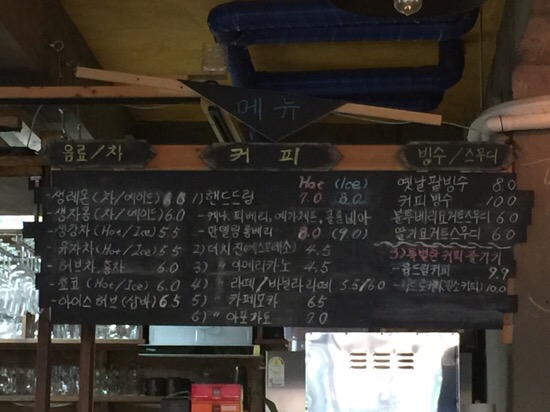 메뉴
음료/차
-생레몬 (차/에이드) 6.0
-생자몽 (차/에이드) 6.0
-생강차 (Hot/Ice) 5.5
-유자차 (Hot/Ice) 5.5
-허브차, 홍차 6.0
-쵸코 (Hot/Ice) 6.0
-아이스허브 6.5
커피
Hot (Ice)
1) 핸드드립 7.0 8.0
-케냐, 피베리, 예가체프, 콜롬비아
8.0 (9.0)
2) 더치진 (에스프레소) 4.5
3) " 아메리카노 4.5
4) " 라떼/바닐라라떼 5.5/6.0
5) " 카페모카 6.5
6) " 아포카토 7.0
빙수/스무디
옛날팥빙수 8.0
커피빙수 10.0
블루베리요거트스무디 6.0
딸기요거트스무디 6.0
특별한 커피 즐기기
9.9
10.0